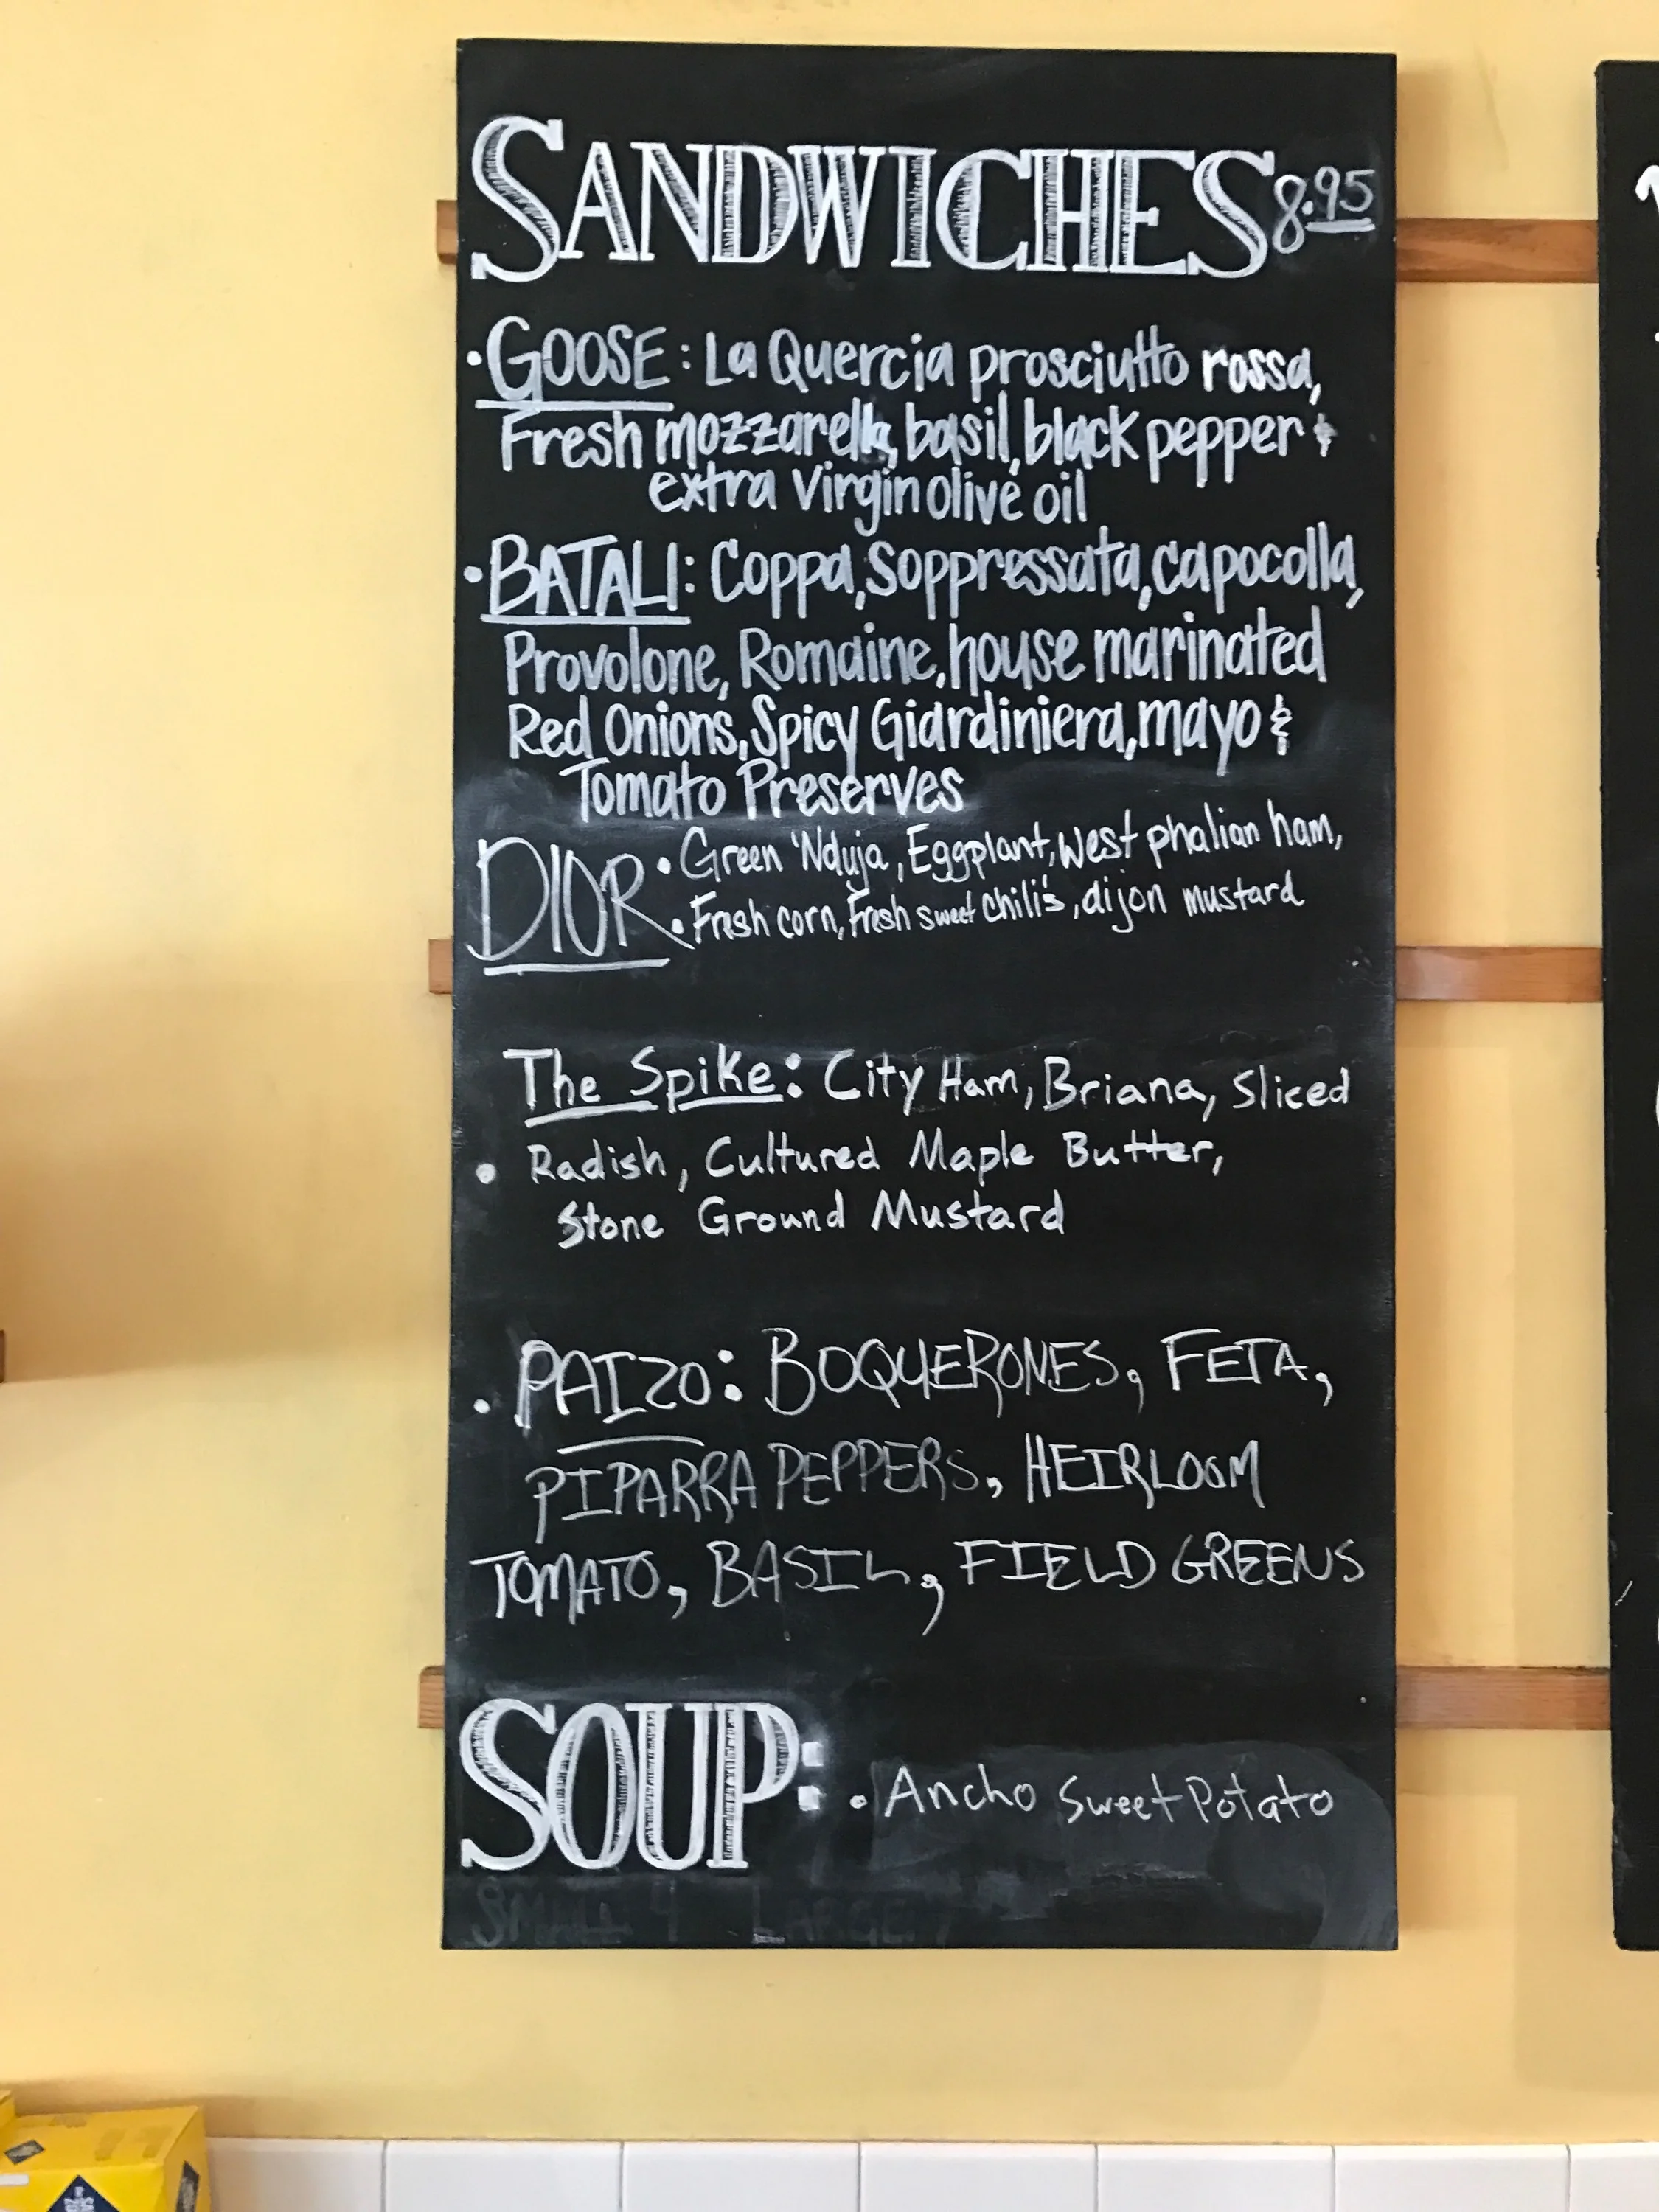 SANDWICHES 8.95
• GOOSE: La Quercia prosciutto rossa,
Fresh mozzarella, basil, black pepper &
extra virgin olive oil
• BATALI: Coppa, Soppressata, capocolla,
Provolone, Romaine, house marinated
Red Onions, Spicy Giardiniera, mayo &
Tomato Preserves
DIOR • Green 'Nduja, Eggplant, West phalian ham,
• Fresh corn, Fresh sweet chili's, dijon mustard
The Spike: City Ham, Briana, Sliced
• Radish, Cultured Maple Butter,
Stone Ground Mustard
• PAIZO: BOQUERONES, FETA,
PIPARRA PEPPERS, HEIRLOOM
TOMATO, BASIL, FIELD GREENS
SOUP: • Ancho Sweet Potato
SMALL 4 LARGE